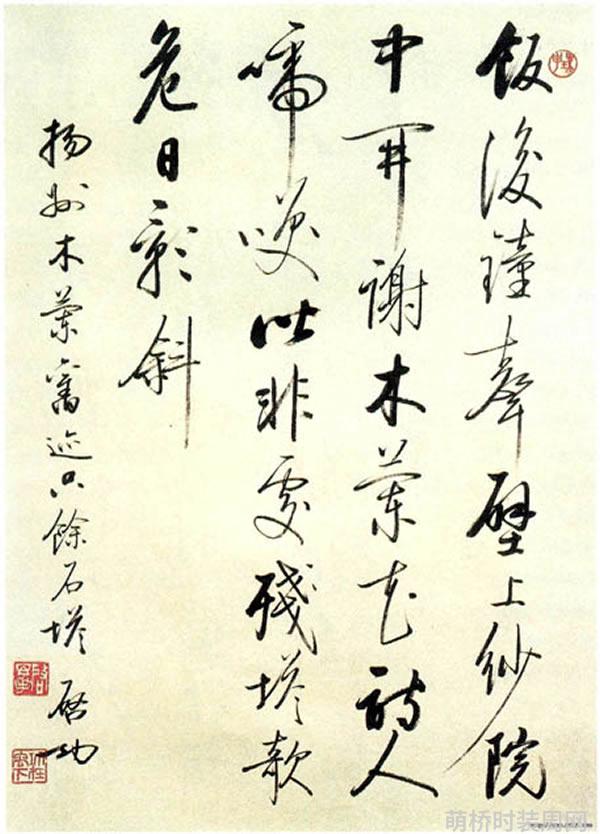 飯後鐘聲壁上紗院
中开謝木蘭花詩人
啼咲皆非處殘塔欹
危日影斜
揚州木蘭舊迹只餘石塔 啟功
萌桥时装周网